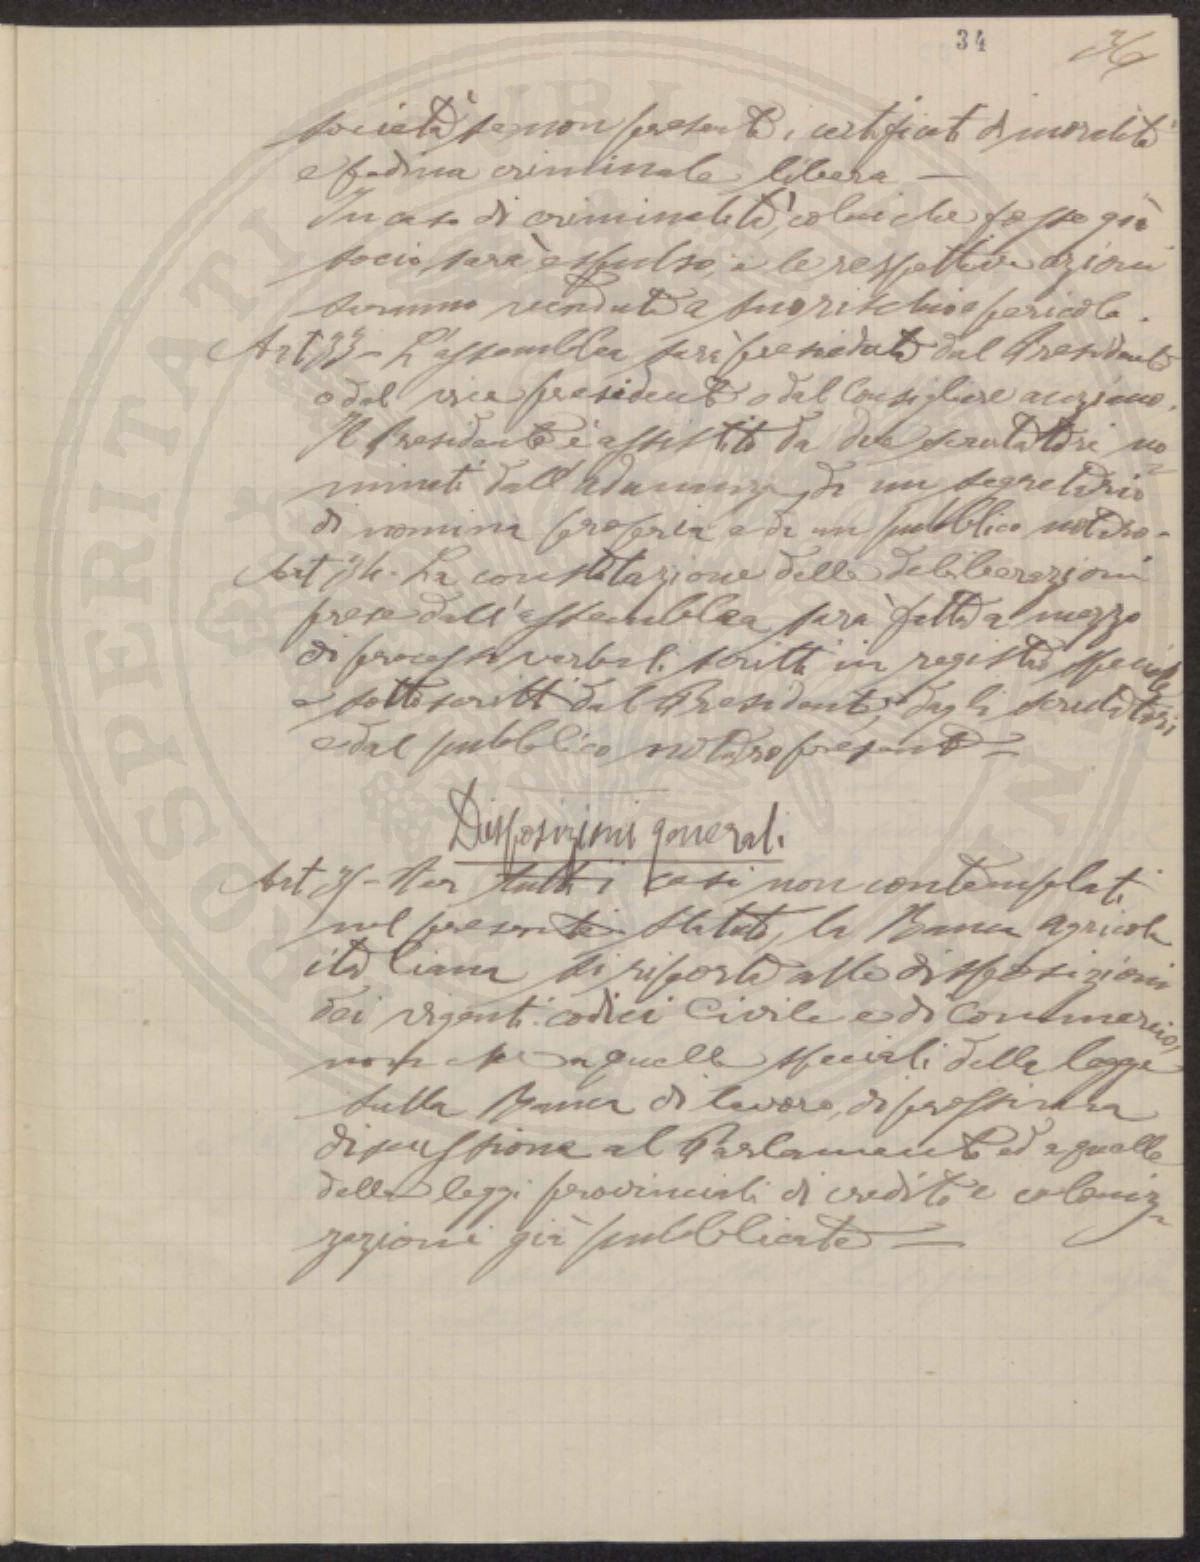 34 36
società se non presenta i certificati di moralità
e fedina criminale libera —
In caso di criminalità, colui che fosse già
socio sarà espulso, e le respettive azioni
saranno vendute a suo rischio e pericolo.
Art 33 - L'assemblea sarà presieduta dal Presidente
o dal vice presidente o dal Consigliere anziano.
Il Presidente è assistito da due scrutatori no-
minati dall'adunanza, da un segretario
di nomina propria e da un pubblico notaro -
Art 34 - La constatazione delle deliberazioni
prese dall'assemblea sarà fatta a mezzo
di processi verbali scritti in registro speciale
e sottoscritti dal Presidente, dagli scrutatori
e dal pubblico notaro presente —
Disposizioni generali
Art 35 - Per tutti i casi non contemplati
nel presente Statuto, la Banca agricola
italiana si riporta alle disposizioni
dei vigenti codici Civile e di Commercio,
non che a quelle speciali della legge
sulla Banca di lavoro, di prossima
discussione al Parlamento ed a quelle
delle leggi provinciali di credito e coloniz-
zazioni già pubblicate —
PROSPERITATI PUBLICAE